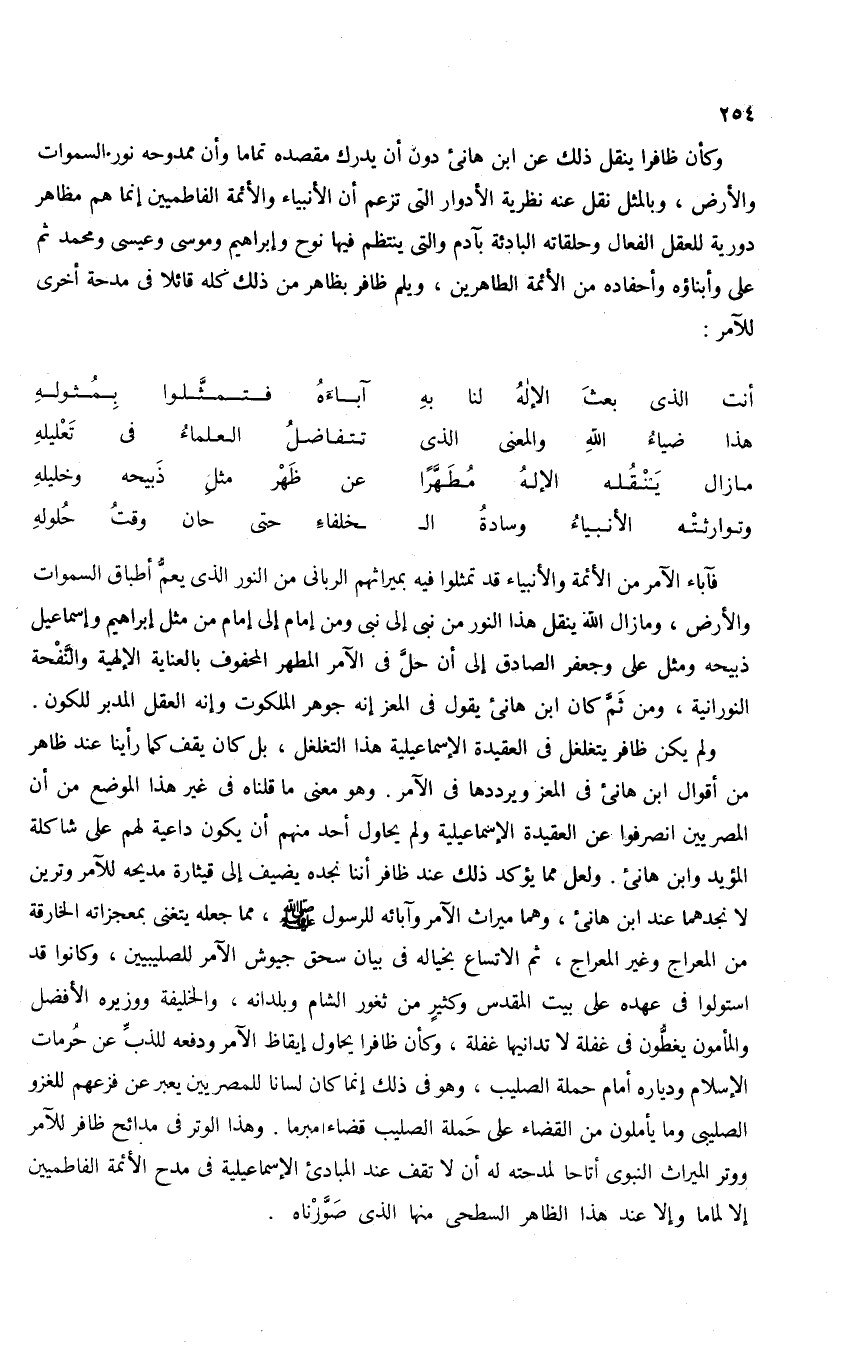 ٢٥٤
وكأن ظافرا ينقل ذلك عن ابن هانئ دون أن يدرك مقصده تماما وأن ممدوحه نور السموات
والأرض ، وبالمثل نقل عنه نظرية الأدوار التى تزعم أن الأنبياء والأئمة الفاطميين إنما هم مظاهر
دورية للعقل الفعال وحلقاته البادئة بآدم والتى ينتظم فيها نوح وإبراهيم وموسى وعيسى ومحمد ثم
على وأبناؤه وأحفاده من الأئمة الطاهرين ، ويلم ظافر بظاهر من ذلك كله قائلا فى مدحة أخرى
للآمر :
أنت الذى بعثَ الإلٰهُ لنا بهِ آبـاءَهُ فـتـمـثَّـلوا بِـمُـثـولـهِ
هذا ضياءُ اللهِ والمعنى الذى تـتـفـاضـلُ الـعـلمـاءُ فى تَعْليلهِ
مـازال يَـتَـنْـقُـلـه الإلـهُ مُـطَـهَّرًا عن ظَهْر مثلِ ذَبيحه وخليلهِ
وتـوارثـتْـه الأنـبـيـاءُ وسادةُ الـ ـخلفاء حتى حان وقتُ حُلولهِ
فآباء الآمر من الأئمة والأنبياء قد تمثلوا فيه بميراثهم الربانى من النور الذى يعمُّ أطباق السموات
والأرض ، ومازال الله ينقل هذا النور من نبى إلى نبى ومن إمام إلى إمام من مثل إبراهيم وإسماعيل
ذبيحه ومثل على وجعفر الصادق إلى أن حلَّ فى الآمر المطهر المحفوف بالعناية الإلهية والنَّفْحة
النورانية ، ومن ثَمَّ كان ابن هانئ يقول فى المعز إنه جوهر الملكوت وإنه العقل المدبر للكون .
ولم يكن ظافر يتغلغل فى العقيدة الإسماعيلية هذا التغلغل ، بل كان يقف كما رأينا عند ظاهر
من أقوال ابن هانئ فى المعز ويرددها فى الآمر . وهو معنى ما قلناه فى غير هذا الموضع من أن
المصريين انصرفوا عن العقيدة الإسماعيلية ولم يحاول أحد منهم أن يكون داعية لهم على شاكلة
المؤيد وابن هانئ . ولعل مما يؤكد ذلك عند ظافر أننا نجده يضيف إلى قيثارة مديحه للآمر وترين
لا نجدهما عند ابن هانئ ، وهما ميراث الآمر وآبائه للرسول ﷺ ، مما جعله يتغنى بمعجزاته الخارقة
من المعراج وغير المعراج ، ثم الاتساع بخياله فى بيان سحق جيوش الآمر للصليبيين ، وكانوا قد
استولوا فى عهده على بيت المقدس وكثيرٍ من ثغور الشام وبلدانه ، والخليفة ووزيره الأفضل
والمأمون يغطُّون فى غفلة لا تدانيها غفلة ، وكأن ظافرا يحاول إيقاظ الآمر ودفعه للذبِّ عن حُرمات
الإسلام ودياره أمام حملة الصليب ، وهو فى ذلك إنما كان لسانا للمصريين يعبر عن فزعهم للغزو
الصليبى وما يأملون من القضاء على حَملة الصليب قضاء مبرما . وهذا الوتر فى مدائح ظافر للآمر
ووتر الميراث النبوى أتاحا لمدحته له أن لا تقف عند المبادئ الإسماعيلية فى مدح الأئمة الفاطميين
إلا لماما وإلا عند هذا الظاهر السطحى منها الذى صَوَّرْناه .